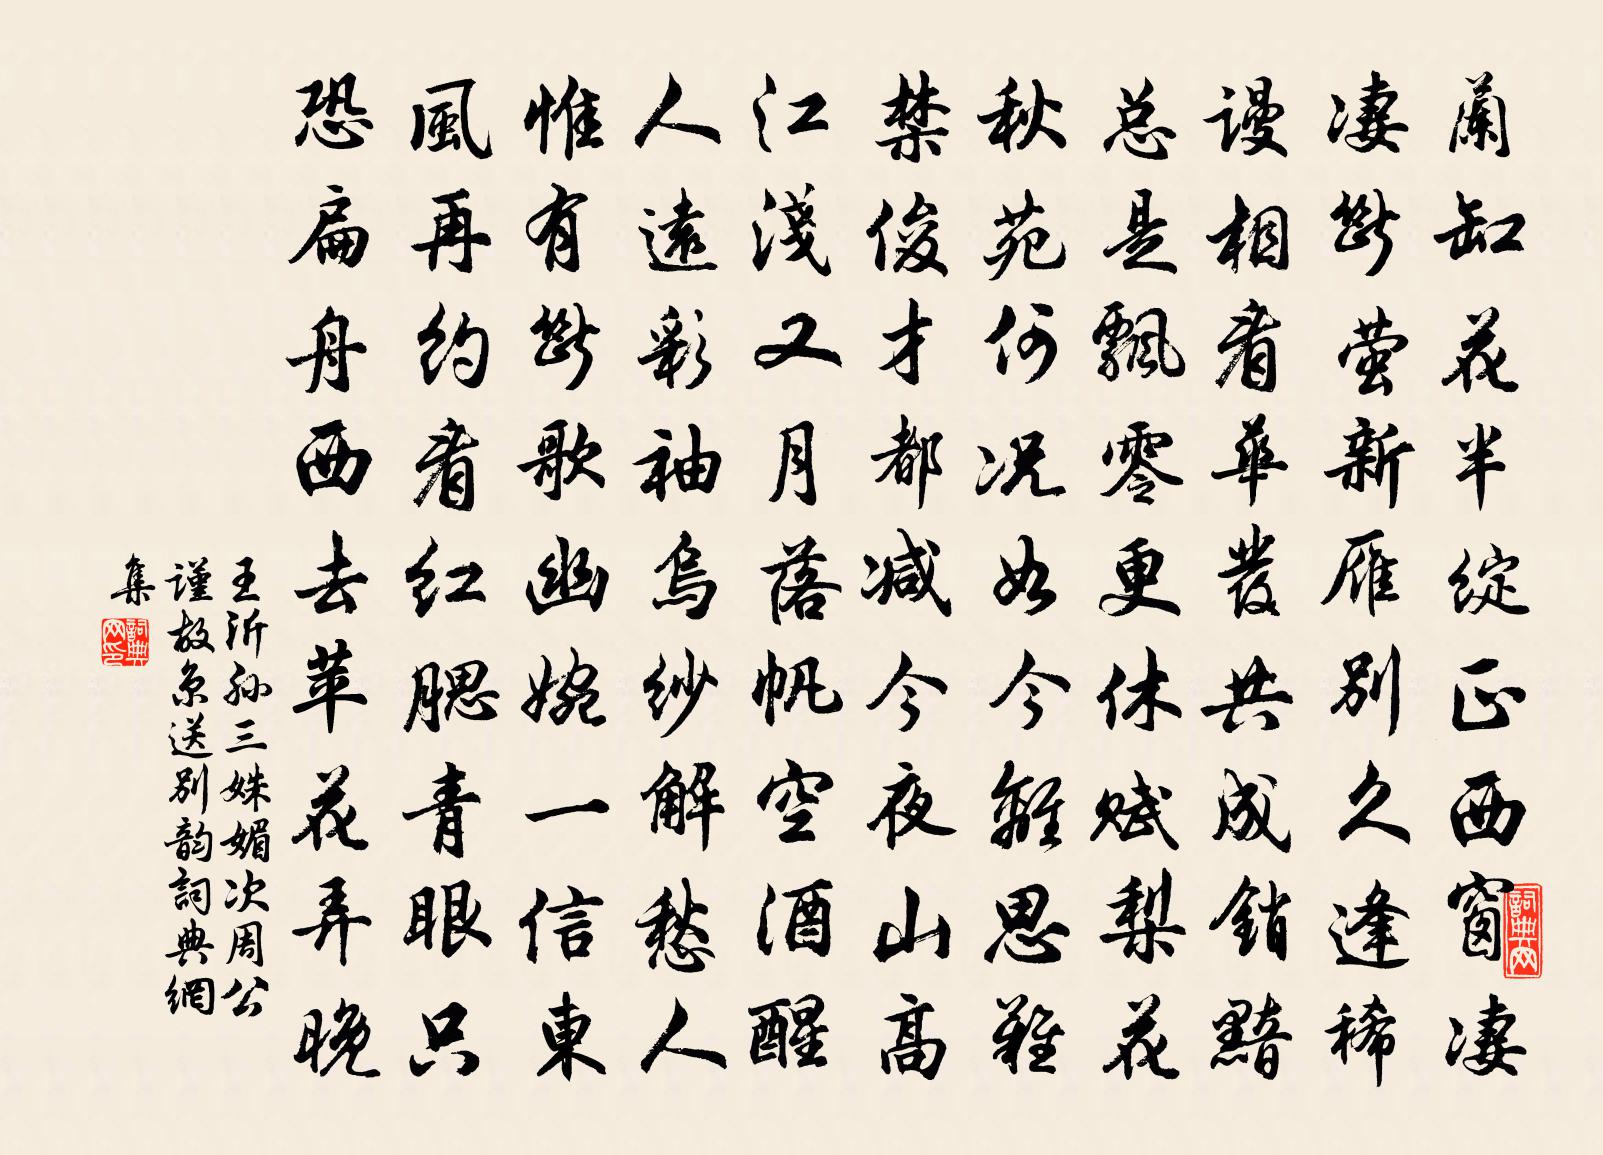 蘭缸花半綻正西窗凄
凄斷萤新雁別久逢稀
谩相看華發共成銷黯
总是飄零更休賦梨花
秋苑何况如今離思難
禁俊才都減今夜山高
江淺又月落帆空酒醒
人遠彩袖烏紗解愁人
惟有斷歌幽婉一信東
風再约看红腮青眼只
恐扁舟西去苹花弄晚
王沂孙三姝媚次周公
謹故京送别韵詞典網
集
詞典网
詞典网印